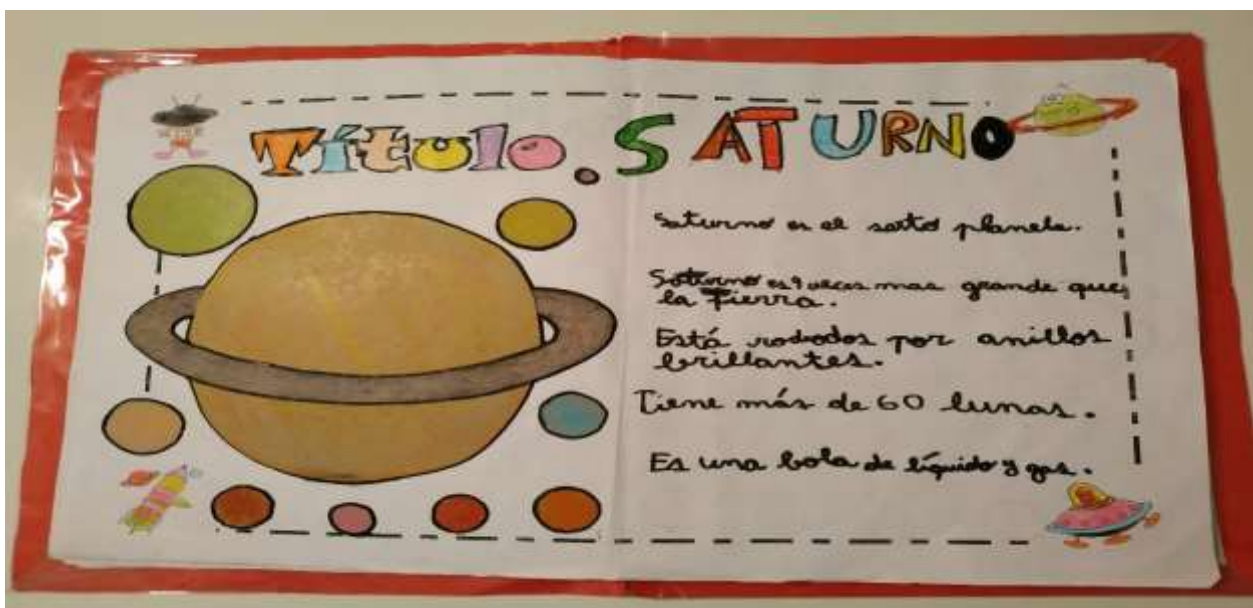 Título. SATURNO
Saturno es el sexto planeta.
Saturno es 9 veces mas grande que
la Tierra.
Está rodeados por anillos
brillantes.
Tiene más de 60 lunas.
Es una bola de líquido y gas.